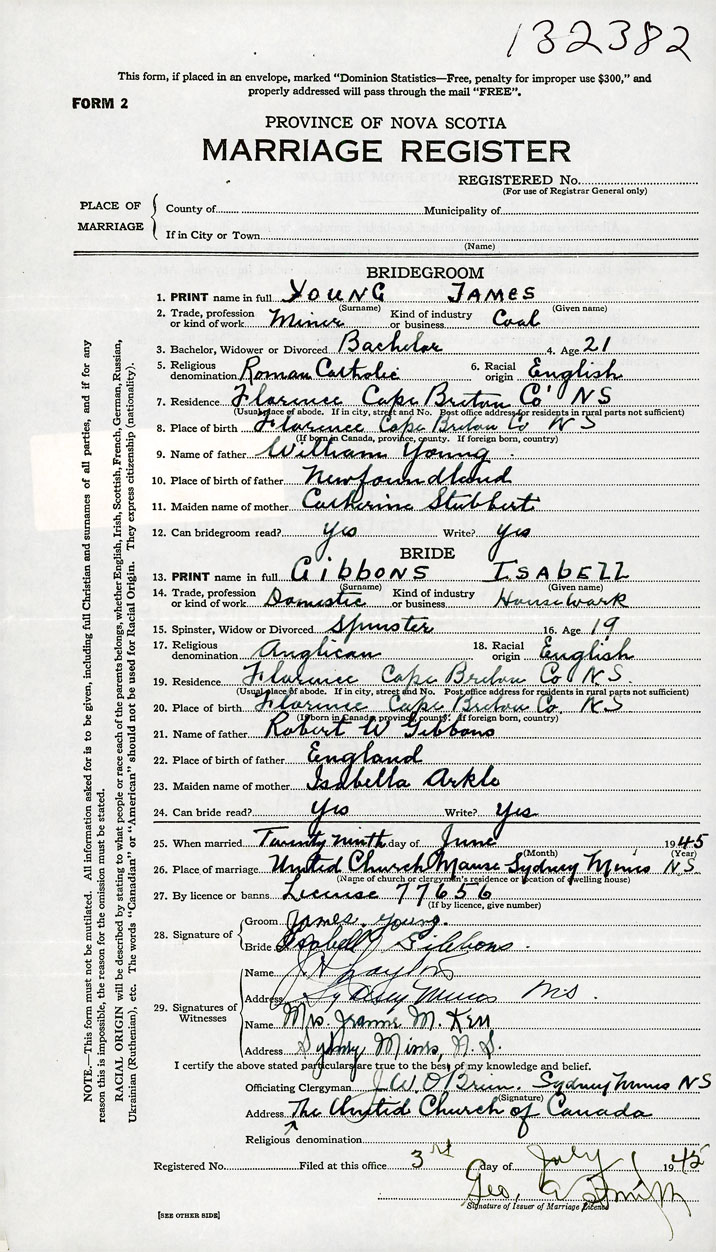 132382
This form, if placed in an envelope, marked "Dominion Statistics—Free, penalty for improper use $300," and
properly addressed will pass through the mail "FREE".
FORM 2
PROVINCE OF NOVA SCOTIA
MARRIAGE REGISTER
REGISTERED No.
(For use of Registrar General only)
PLACE OF MARRIAGE
County of Municipality of
If in City or Town
(Name)
BRIDEGROOM
1. PRINT name in full YOUNG JAMES
(Surname) (Given name)
2. Trade, profession or kind of work Miner Kind of industry or business Coal
3. Bachelor, Widower or Divorced Bachelor 4. Age 21
5. Religious denomination Roman Catholic 6. Racial origin English
7. Residence Florence Cape Breton Co NS
(Usual place of abode. If in city, street and No. Post office address for residents in rural parts not sufficient)
8. Place of birth Florence Cape Breton Co NS
(If born in Canada, province, county. If foreign born, country)
9. Name of father William Young
10. Place of birth of father Newfoundland
11. Maiden name of mother Catherine Stubbert
12. Can bridegroom read? yes Write? yes
BRIDE
13. PRINT name in full GIBBONS ISABELL
(Surname) (Given name)
14. Trade, profession or kind of work Domestic Kind of industry or business Housework
15. Spinster, Widow or Divorced Spinster 16. Age 19
17. Religious denomination Anglican 18. Racial origin English
19. Residence Florence Cape Breton Co NS.
(Usual place of abode. If in city, street and No. Post office address for residents in rural parts not sufficient)
20. Place of birth Florence Cape Breton Co. NS
(If born in Canada, province, county. If foreign born, country)
21. Name of father Robert W Gibbons
22. Place of birth of father England
23. Maiden name of mother Isabella Arkle
24. Can bride read? Yes Write? Yes
25. When married Twenty ninth day of June 1945
(Month) (Year)
26. Place of marriage United Church Manse Sydney Mines NS
(Name of church or clergyman's residence or location of dwelling house)
27. By licence or banns License 77656
(If by licence, give number)
28. Signature of
Groom James Young.
Bride Isabell Gibbons.
29. Signatures of Witnesses
Name
Address Sydney Mines NS.
Name Mrs. Jeanne M. Kerr
Address Sydney Mines, N.S.
I certify the above stated particulars are true to the best of my knowledge and belief.
Officiating Clergyman J.W. O'Brien. Sydney Mines NS
(Signature)
Address The United Church of Canada
Religious denomination
Registered No. Filed at this office 3rd day of July 1945
Geo. A Smith
Signature of Issuer of Marriage Licence
[SEE OTHER SIDE]
NOTE.—This form must not be mutilated. All information asked for is to be given, including full Christian and surnames of all parties, and if for any
reason this is impossible, the reason for the omission must be stated.
RACIAL ORIGIN will be described by stating to what people or race each of the parents belongs, whether English, Irish, Scottish, French, German, Russian,
Ukrainian (Ruthenian), etc. The words "Canadian" or "American" should not be used for Racial Origin. They express citizenship (nationality).